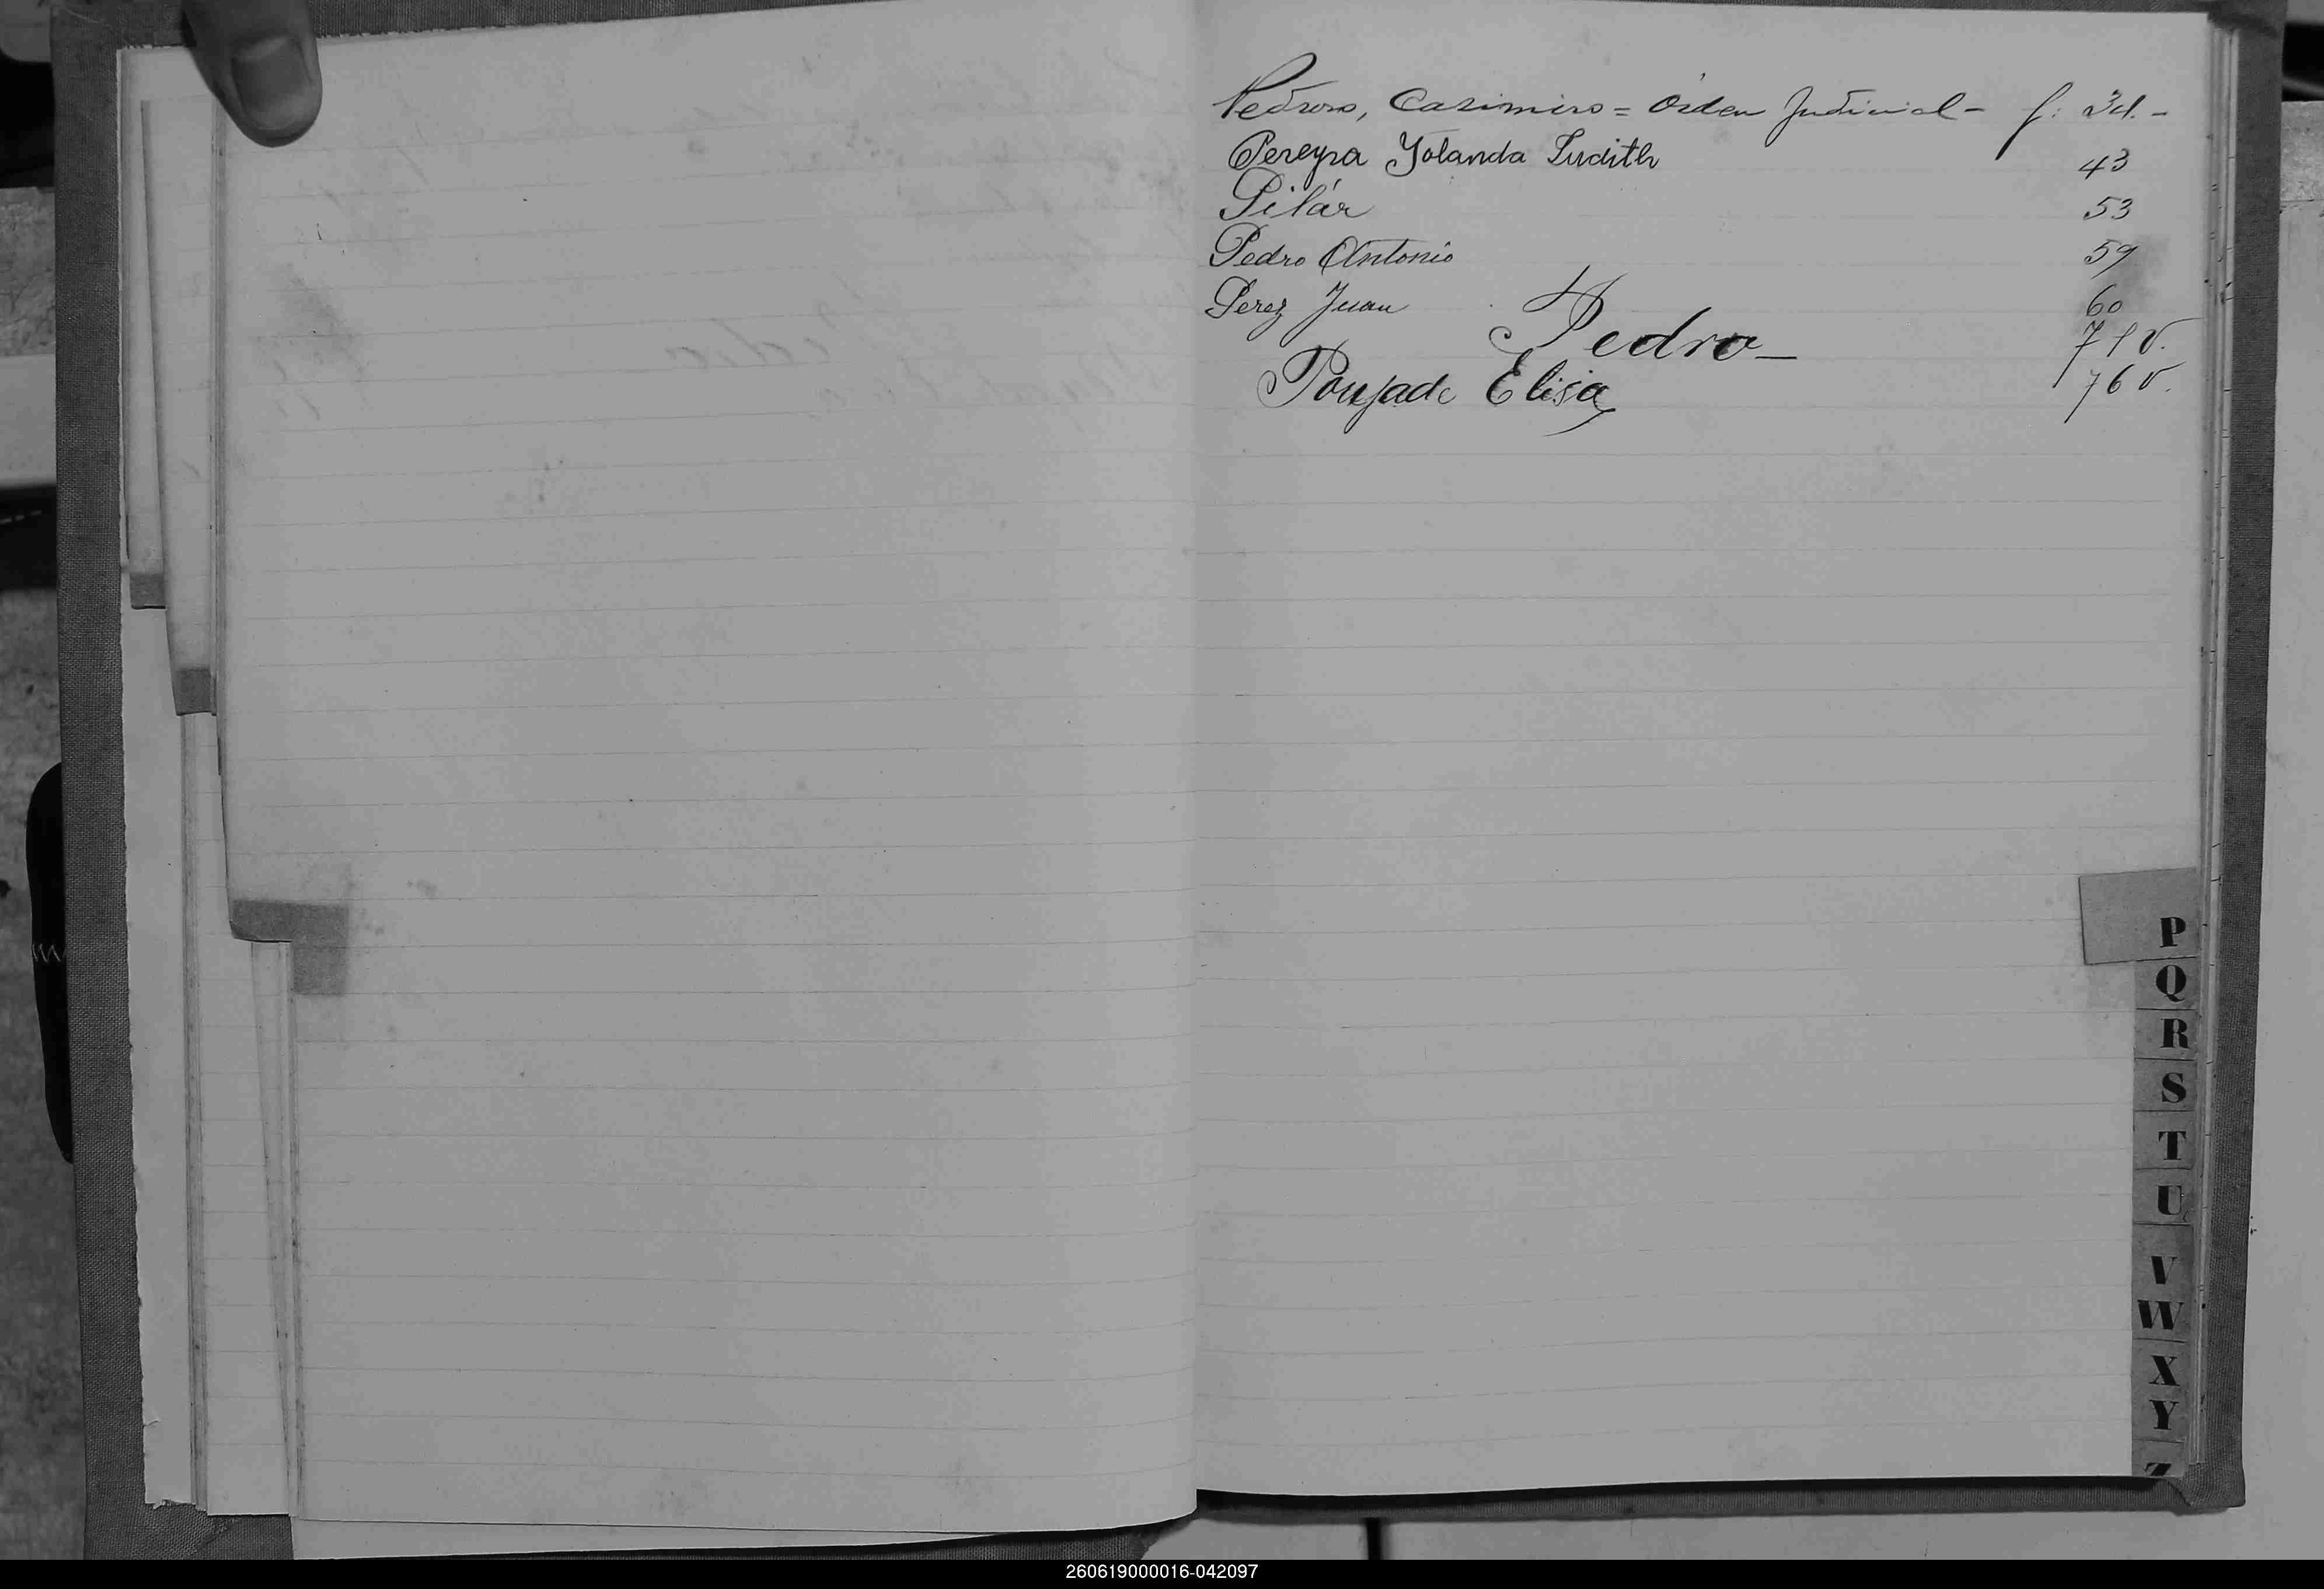 Pedroso, Casimiro = Orden Judicial - f:
Pereyra Yolanda Judith 43
Pilár 53
Pedro Antonio 59
Perez Juan 60
Pedro — 71 v.
Poujade Elisa 76 v.
P
Q
R
S
T
U
V
W
X
Y
Z
260619000016-042097